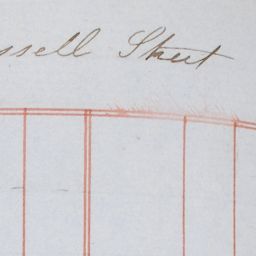 ssell Street